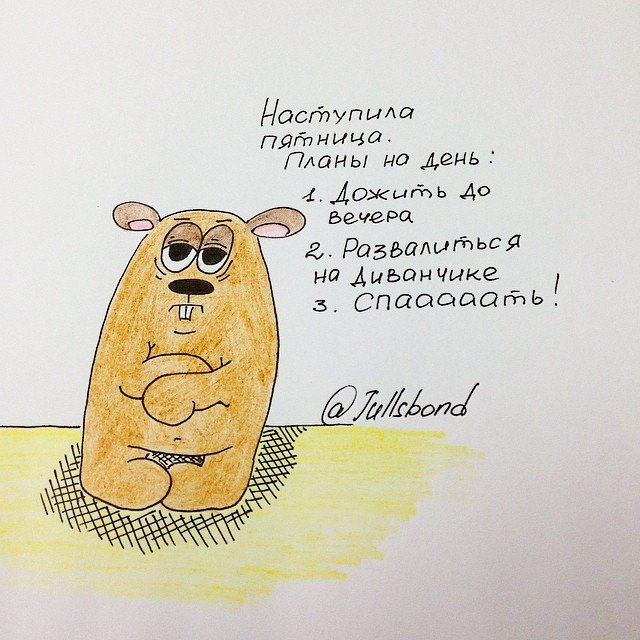 Наступила
пятница.
Планы на день:
1. Дожить до
вечера
2. Развалиться
на диванчике
3. Спааааать!
@Jullsbond